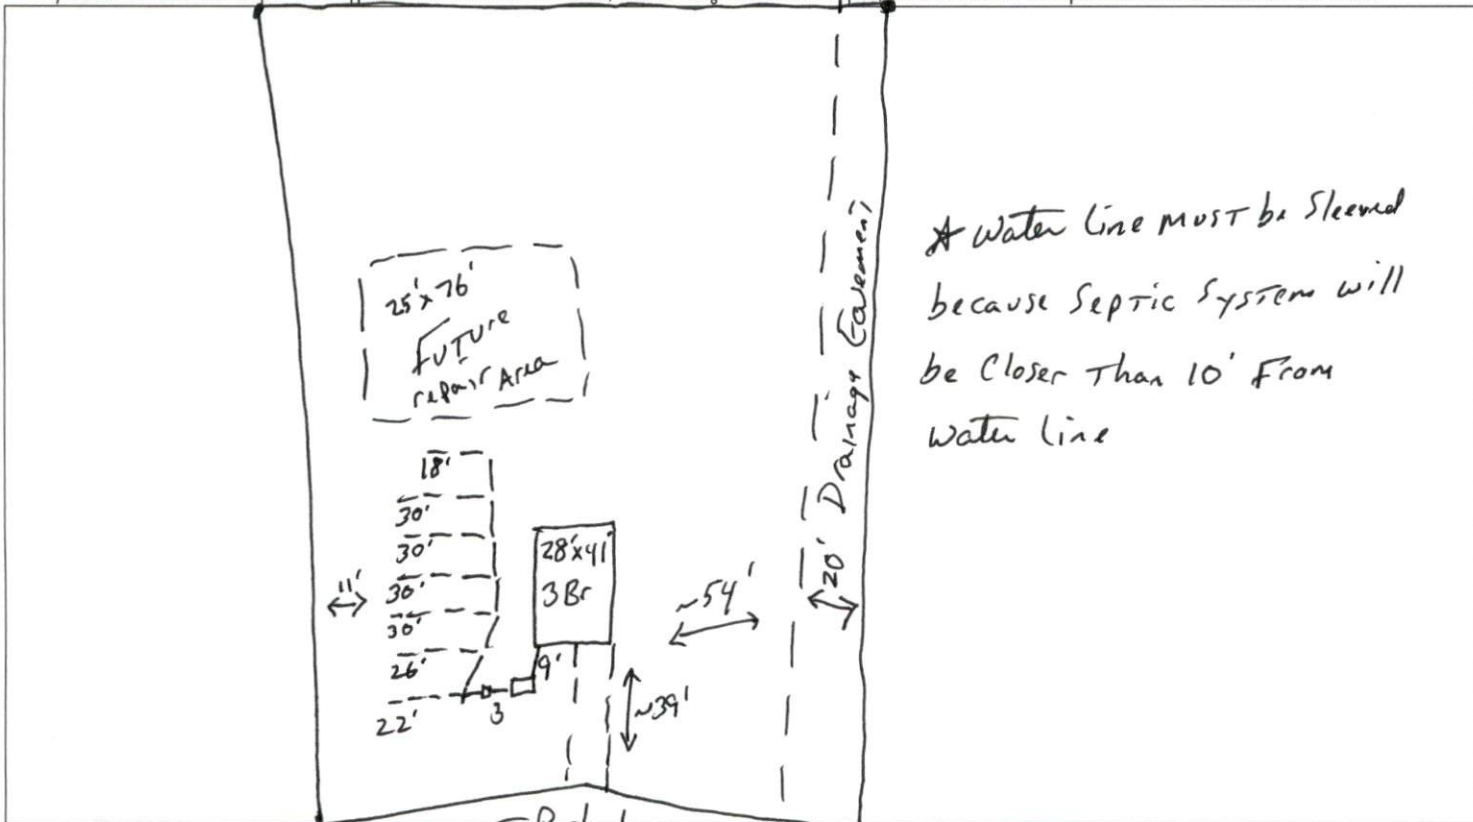 25'x76'
Future
repair Area
18'
30'
30'
30'
30'
26'
22'
11'
28'x41'
3Br
9'
3
~54'
~39'
20' Drainage Easement
* Water Line MUST be Sleeved
because Septic System will
be Closer Than 10' From
Water Line